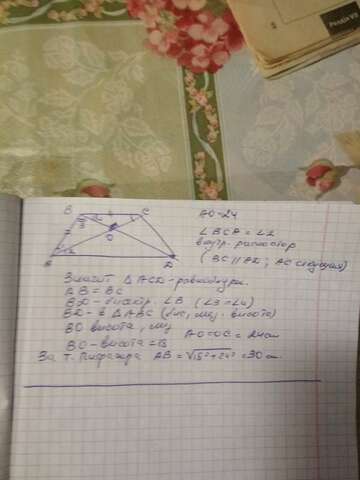 B
C
3
O
A
D
AO = 24
∠BCA = ∠2
внутр. разностор
(BC || AD; AC секущая)
Значит Δ ACD - равнобедр.
AB = BC
BD - биссектр. ∠B (∠3 = ∠4)
BD - в Δ ABC (бис, мед. высота)
BO высота, мед
AO = OC = 24см
BO - высота = 18
За т. Пифагора AB = √18² + 24² = 30 см